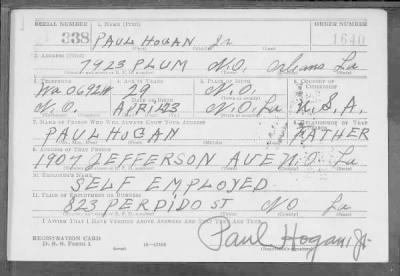 SERIAL NUMBER 1. NAME (Print) ORDER NUMBER
338 PAUL HOGAN Jr 1640
(First) (Middle) (Last)
2. ADDRESS (Print)
7923 PLUM N.O. Orleans La
3. TELEPHONE 4. AGE IN YEARS 5. PLACE OF BIRTH 6. COUNTRY OF CITIZENSHIP
Wa 0692W 29 N.O.
DATE OF BIRTH
N.O. APRIL 23 N.O. La U.S.A.
7. NAME OF PERSON WHO WILL ALWAYS KNOW YOUR ADDRESS 8. RELATIONSHIP OF THAT PERSON
PAUL HOGAN FATHER
9. ADDRESS OF THAT PERSON
1907 JEFFERSON AVE N.O. La
10. EMPLOYER'S NAME
SELF EMPLOYED
11. PLACE OF EMPLOYMENT OR BUSINESS
823 PERDIDO ST NO La
I AFFIRM THAT I HAVE VERIFIED ABOVE ANSWERS AND THAT THEY ARE TRUE.
REGISTRATION CARD
D. S. S. FORM 1 Paul Hogan, Jr.
(over) (Registrant's signature)